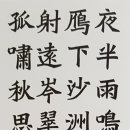 夜半雨鳴
鴈下沙洲
射遠岑翠
孤嘯秋思